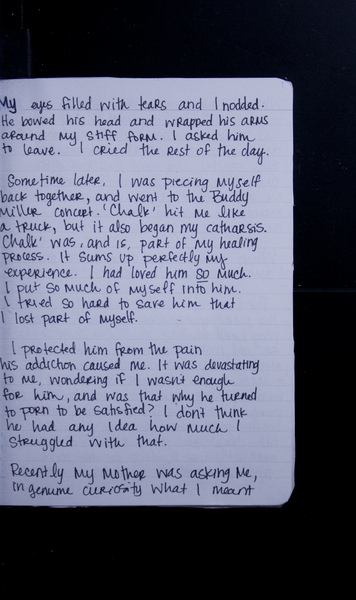 My eyes filled with tears and I nodded.
He bowed his head and wrapped his arms
around my stiff form. I asked him
to leave. I cried the rest of the day.
Sometime later, I was piecing myself
back together, and went to the Buddy
Miller concert. 'Chalk' hit me like
a truck, but it also began my catharsis.
'Chalk' was, and is, part of my healing
process. It sums up perfectly my
experience. I had loved him so much.
I put so much of myself into him.
I tried so hard to save him that
I lost part of myself.
I protected him from the pain
his addiction caused me. It was devastating
to me, wondering if I wasn't enough
for him, and was that why he turned
to porn to be satisfied? I don't think
he had any idea how much I
struggled with that.
Recently my mother was asking me,
in genuine curiosity what I meant